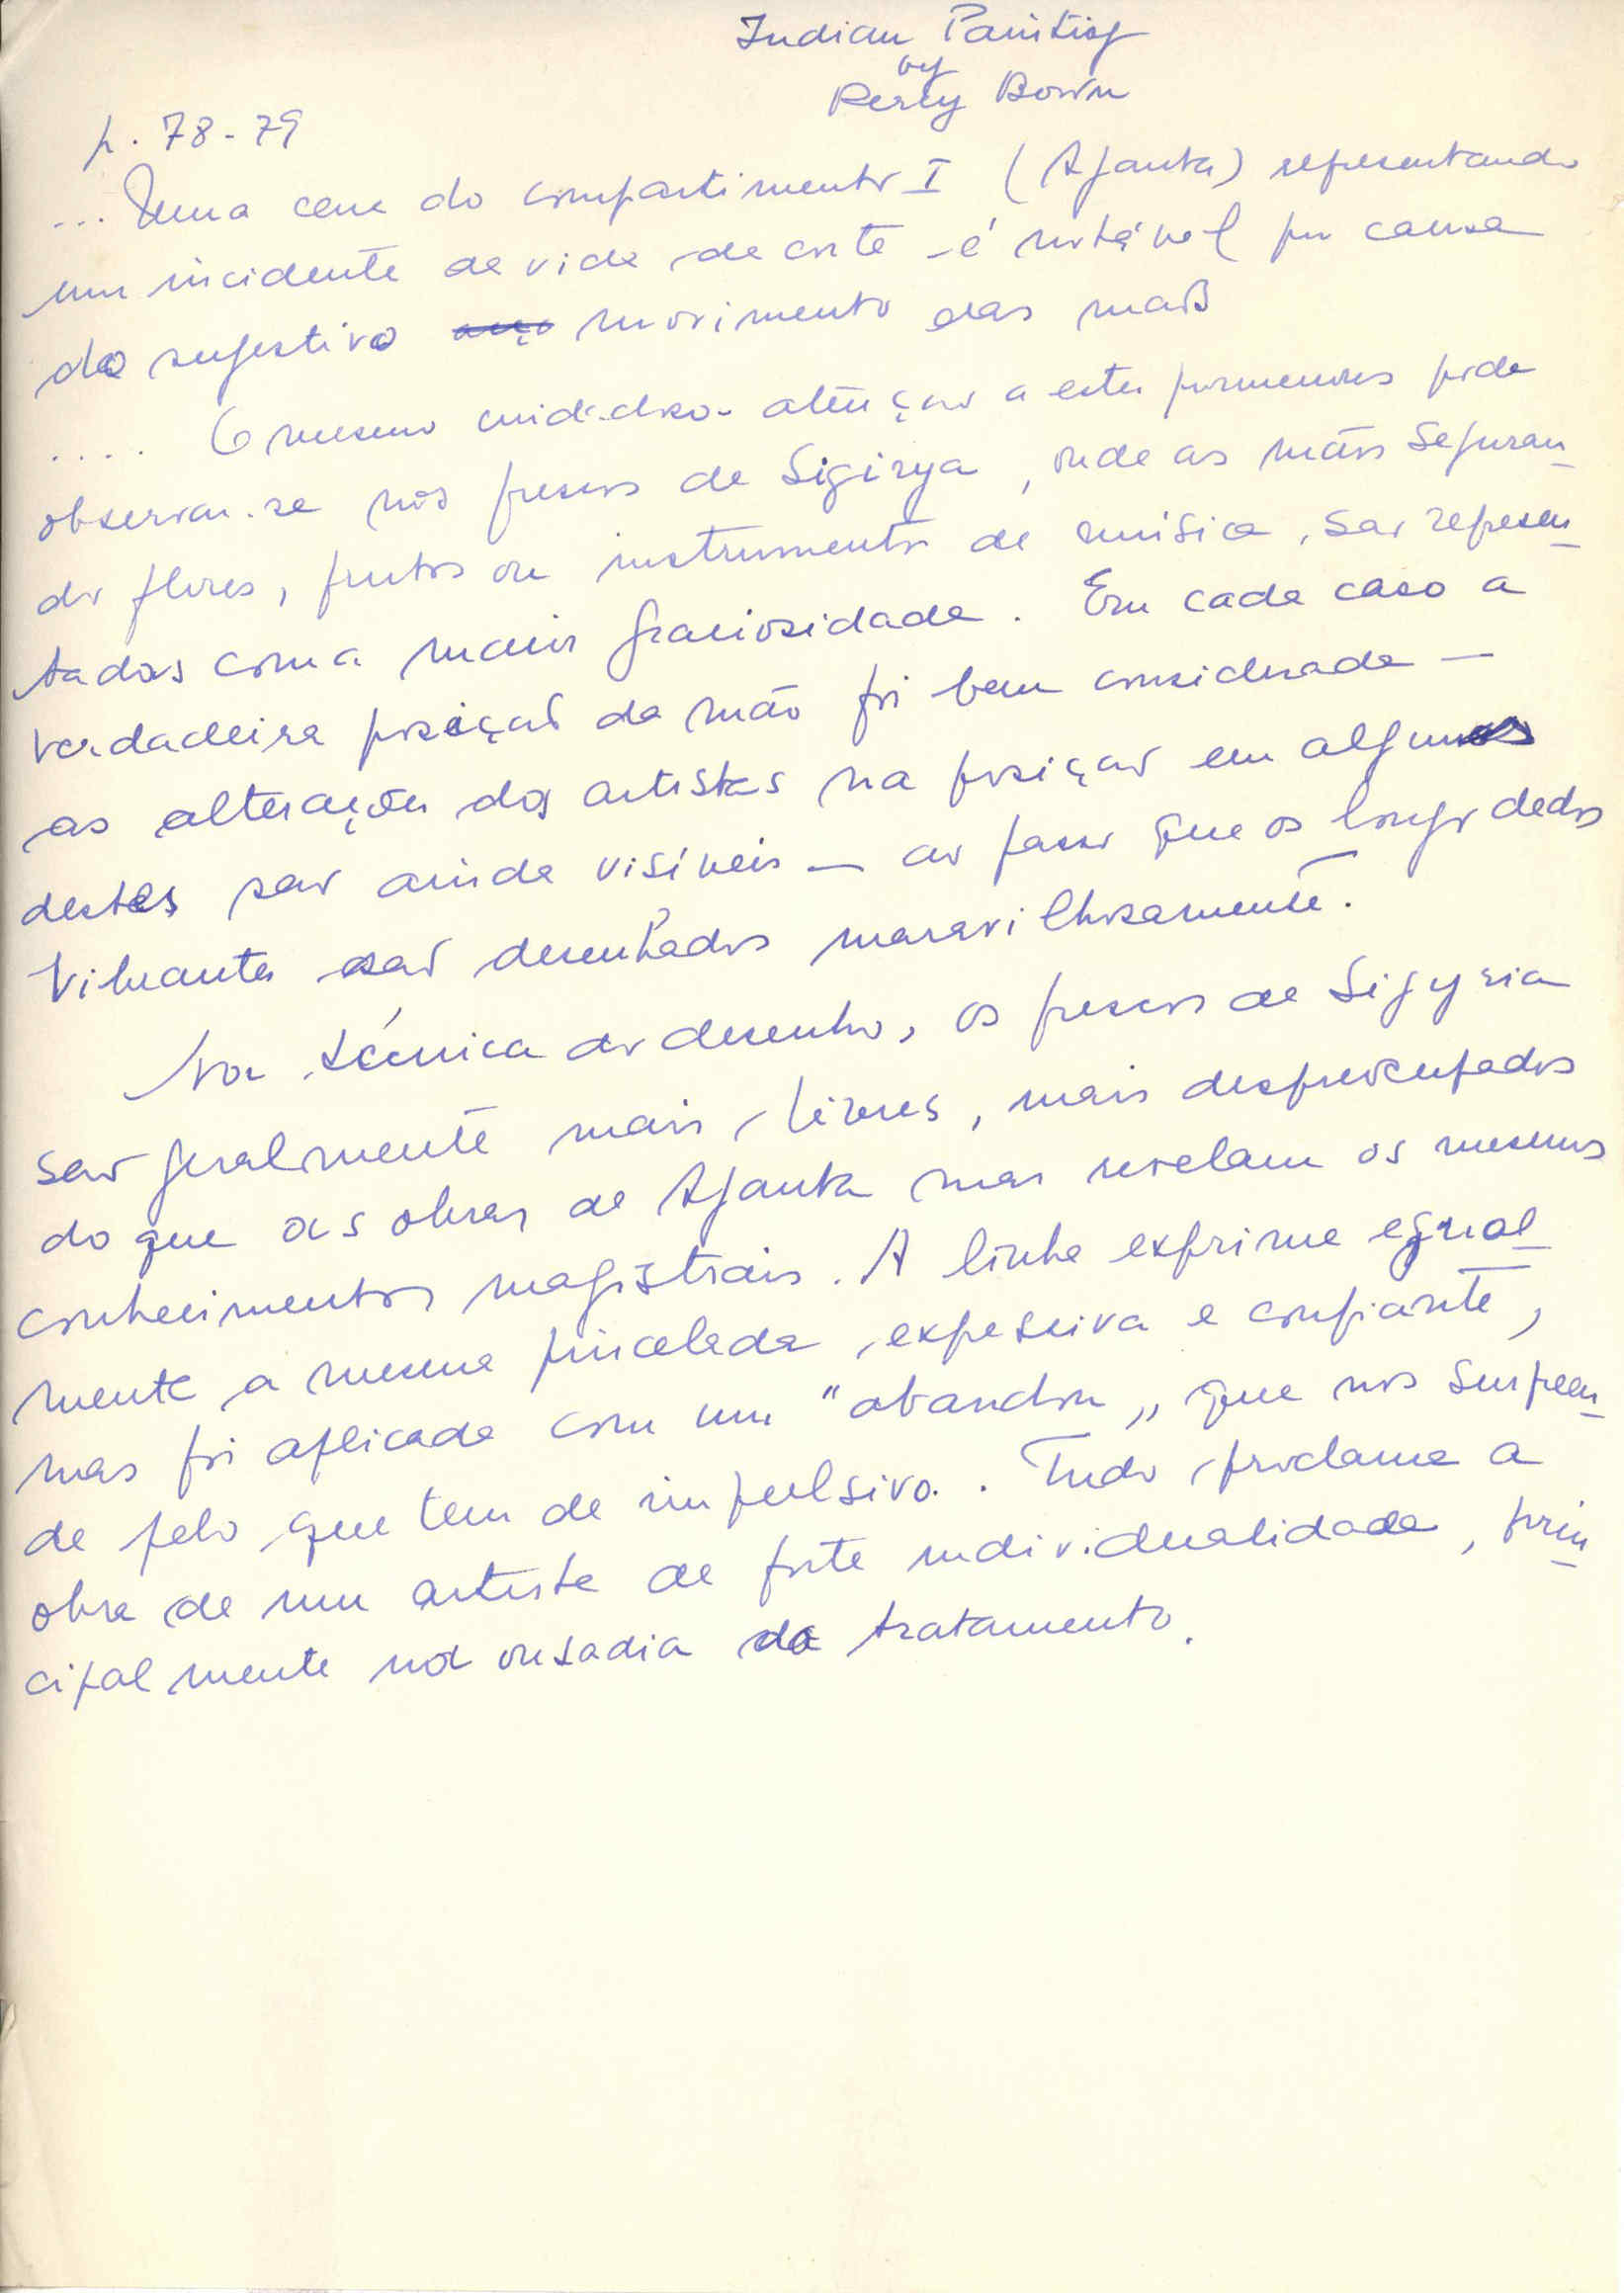 Indian Painting
by
Percy Bown
p. 78-79
... Uma cena do compartimento I (Ajanta) representando
um incidente da vida da corte - é notável por causa
do sugestivo movimento das mãos
.... O mesmo cuidadoso atenção a estes pormenores pode
observar-se nos frescos de Sigirya, onde as mãos seguran-
do flores, frutos ou instrumentos de música, são represen-
tadas com a maior graciosidade. Em cada caso a
verdadeira posição da mão foi bem considerada —
as alterações dos artistas na posição em algumas
destas são ainda visíveis — ao passo que os longos dedos
vibrantes são desenhados maravilhosamente.
Na técnica do desenho, os frescos de Sigyria
são geralmente mais livres, mais despreocupados
do que as obras de Ajanta mas revelam os mesmos
conhecimentos magistrais. A linha exprime egual-
mente a mesma pincelada, expressiva e confiante,
mas foi aplicada com um "abandon" que nos surpreen-
de pelo que tem de impulsivo. Tudo proclama a
obra de um artista de forte individualidade, prin-
cipalmente na ousadia do tratamento.